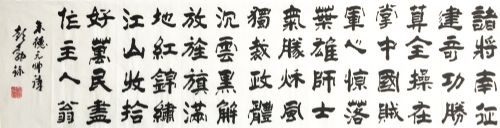 諸將南征
建奇功勝
算全操在
掌中國賊
軍心驚落
葉雄師士
氣勝秋風
獨裁政體
沉雲黑解
放旌旗滿
地紅錦繡
江山收拾
好萬民盡
作主人翁
朱德元帥詩